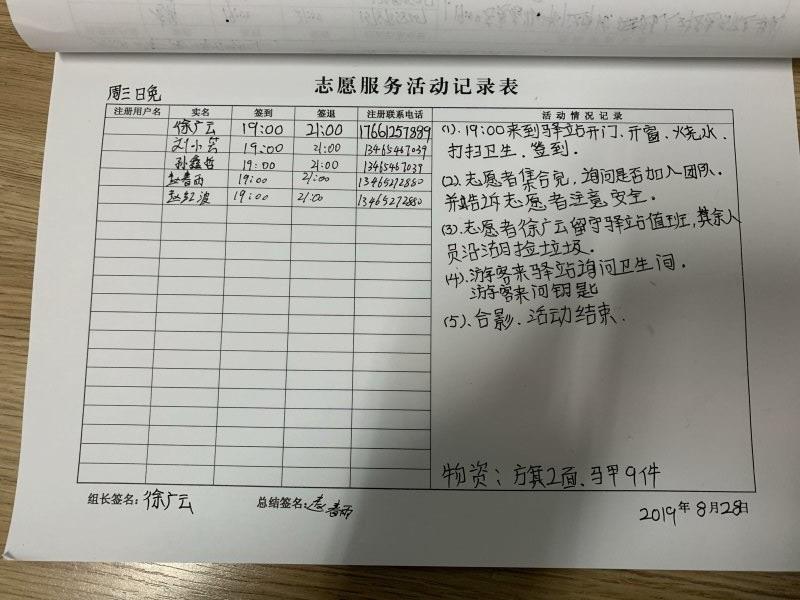 志愿服务活动记录表
周三日免
注册用户名 实名 签到 签退 注册联系电话 活动情况记录
徐广云 19:00 21:00 17661257889
刘小芸 19:00 21:00 13465467039
孙鑫哲 19:00 21:00 13465467039
赵春雨 19:00 21:00 13465272880
赵红波 19:00 21:00 13465272880
(1).19:00来到驿站开门、开窗、烧水、
打扫卫生.签到.
(2).志愿者集合完,询问是否加入团队.
并告诉志愿者注意安全.
(3).志愿者徐广云留守驿站值班,其余人
员沿湖捡垃圾.
(4).游客来驿站询问卫生间.
游客来问钥匙
(5).合影.活动结束.
物资:方旗2面.马甲9件
组长签名:徐广云 总结签名:赵春雨 2019年8月28日